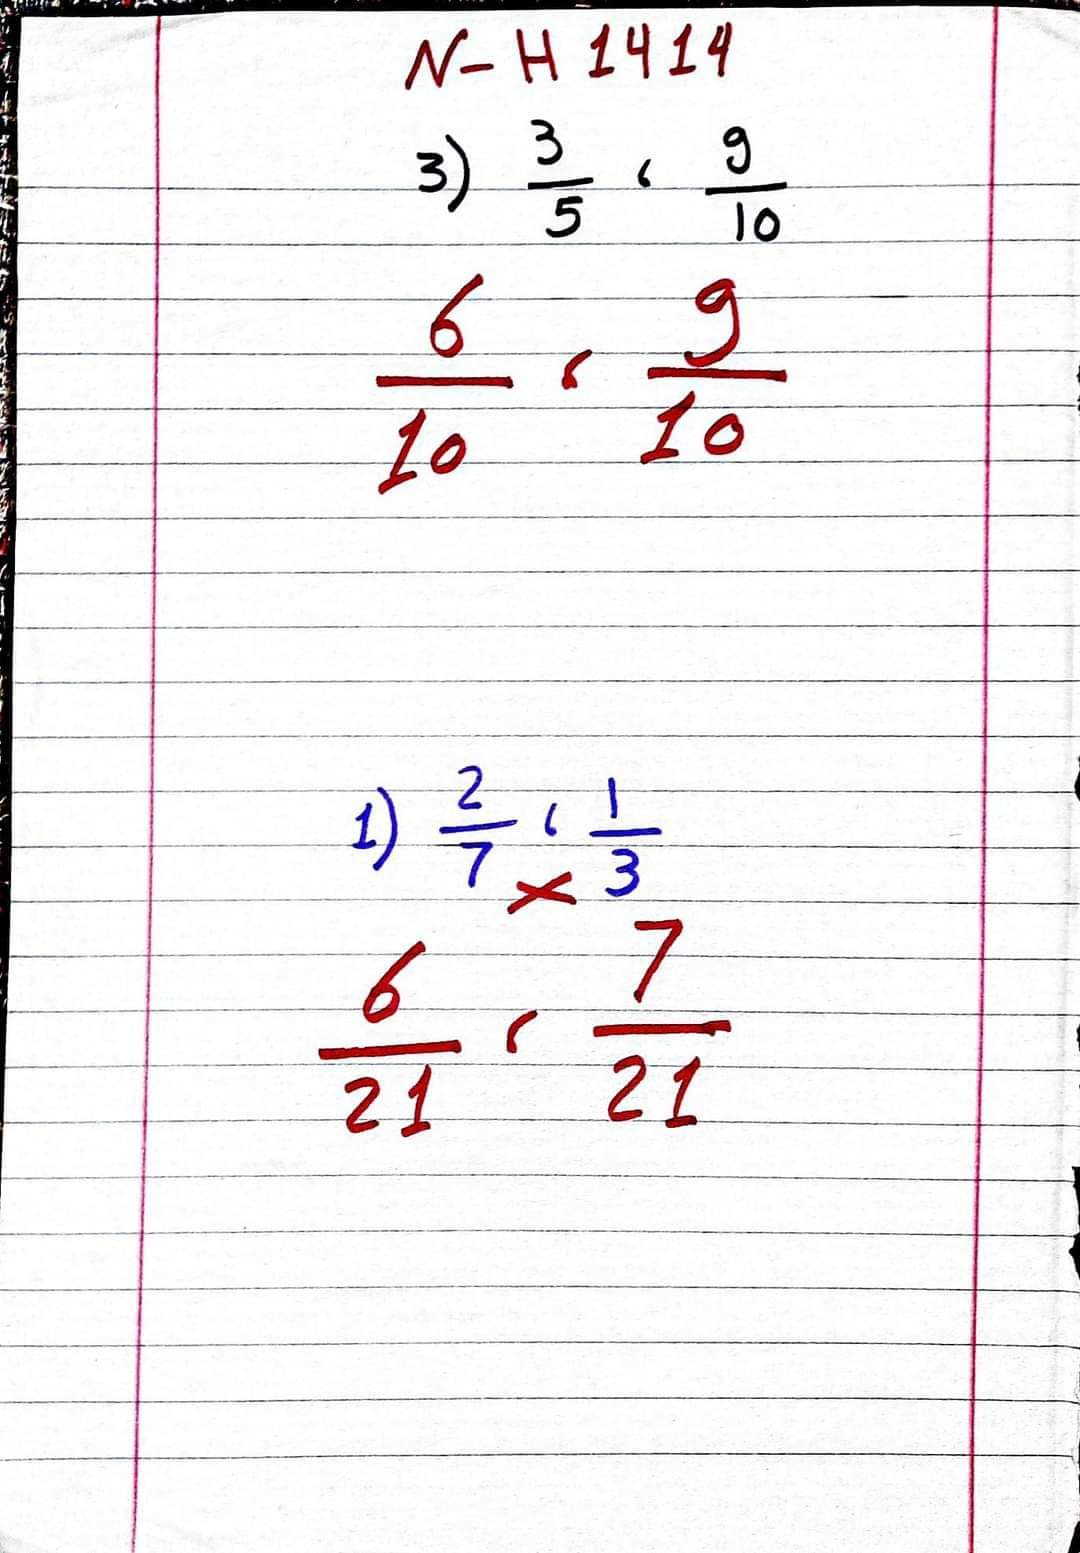 N-H 1414
3) 3/5 ، 9/10
6/10 ، 9/10
1) 2/7 ، 1/3
×
6/21 ، 7/21